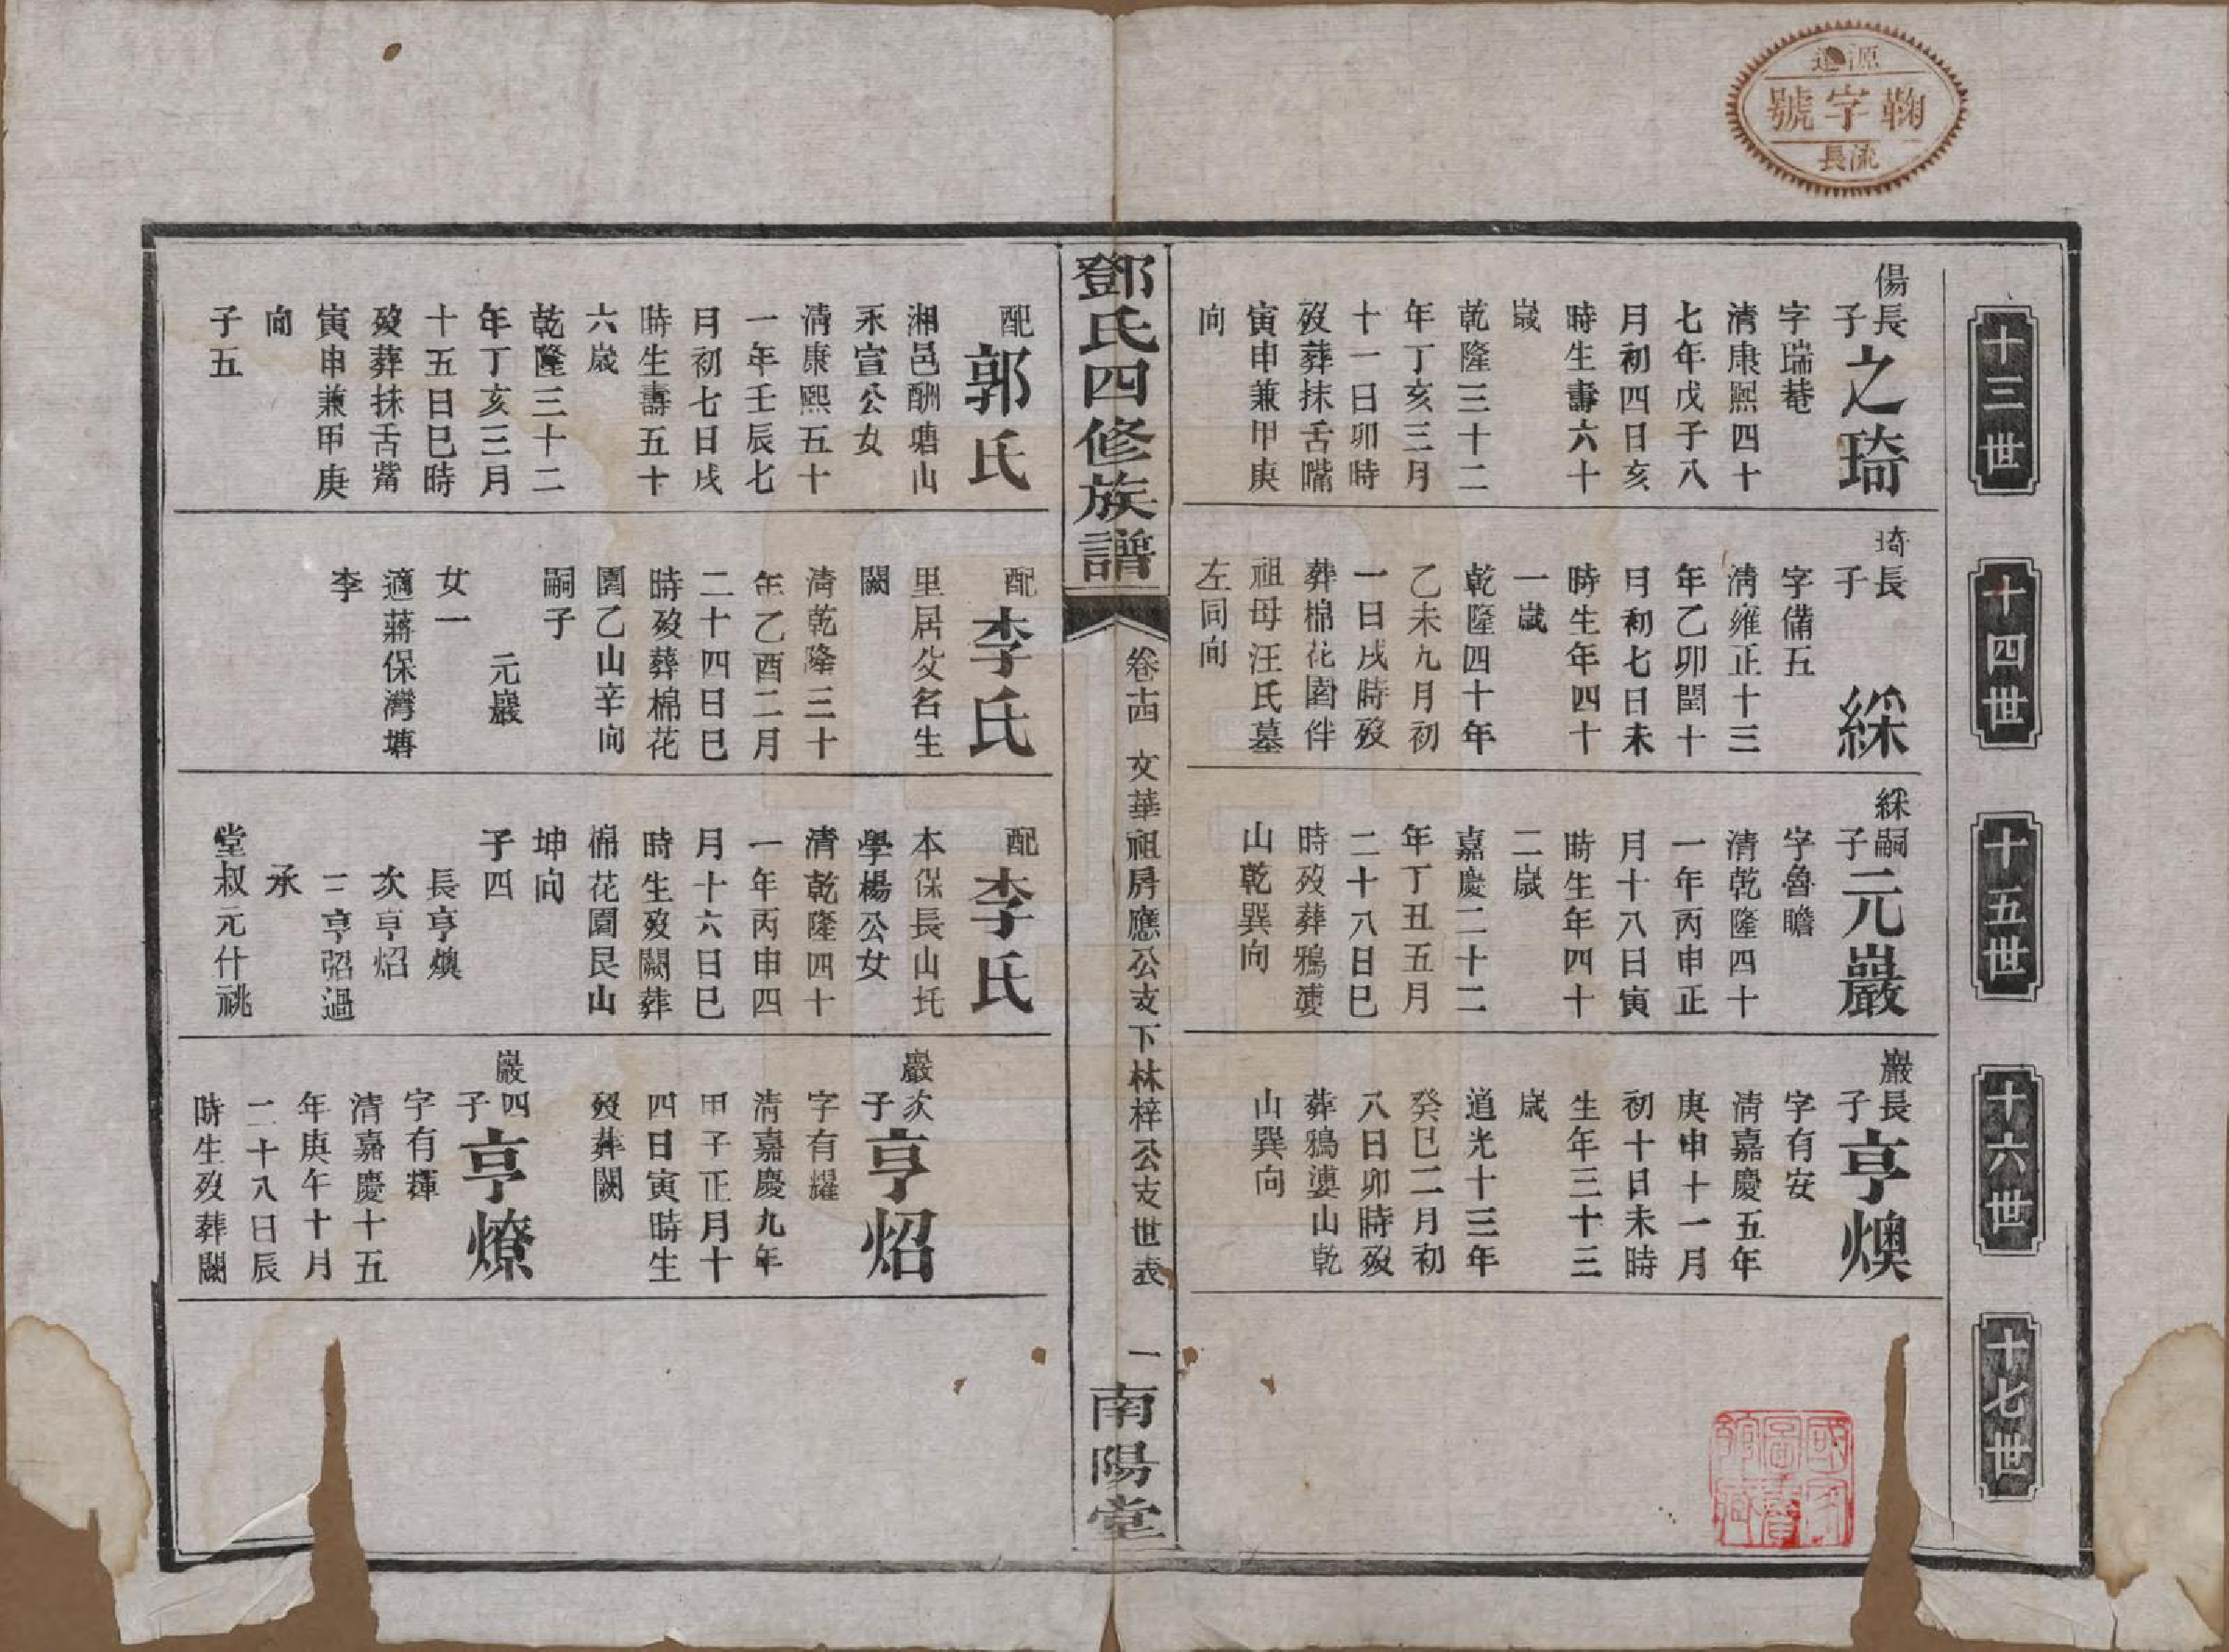 源遠
鞠字號
流長
十三世
十四世
十五世
十六世
十七世
傷長子之琦
字瑞菴
清康熙四十
七年戊子八
月初四日亥
時生壽六十
歲
乾隆三十二
年丁亥三月
十一日卯時
歿葬抹舌嘴
寅申兼甲庚
向
琦長子綵
字備五
清雍正十三
年乙卯閏十
月初七日未
時生年四十
一歲
乾隆四十年
乙未九月初
一日戌時歿
葬棉花園伴
祖母汪氏墓
左同向
綵嗣子元巖
字魯瞻
清乾隆四十
一年丙申正
月十八日寅
時生年四十
二歲
嘉慶二十二
年丁丑五月
二十八日巳
時歿葬鴉婆
山乾巽向
巖長子亨燠
字有安
清嘉慶五年
庚申十一月
初十日未時
生年三十三
歲
道光十三年
癸巳二月初
八日卯時歿
葬鴉婆山乾
山巽向
鄧氏四修族譜
卷十四
文華祖房應公支下林梓公支世表
一
南陽堂
配郭氏
湘邑酬塘山
永宣公女
清康熙五十
一年壬辰七
月初七日戌
時生壽五十
六歲
乾隆三十二
年丁亥三月
十五日巳時
歿葬抹舌觜
寅申兼甲庚
向
子五
配李氏
里居父名生
闕
清乾隆三十
年乙酉二月
二十四日巳
時歿葬棉花
園乙山辛向
嗣子
元巖
女一
適蔣保灣塘
李
配李氏
本保長山圫
學楊公女
清乾隆四十
一年丙申四
月十六日巳
時生歿闕葬
棉花園艮山
坤向
子四
長亨燠
次亨炤
三亨弨過
承
堂叔元什祧
巖次子亨炤
字有耀
清嘉慶九年
甲子正月十
四日寅時生
歿葬闕
巖四子亨燎
字有輝
清嘉慶十五
年庚午十月
二十八日辰
時生歿葬闕
國家圖書館藏